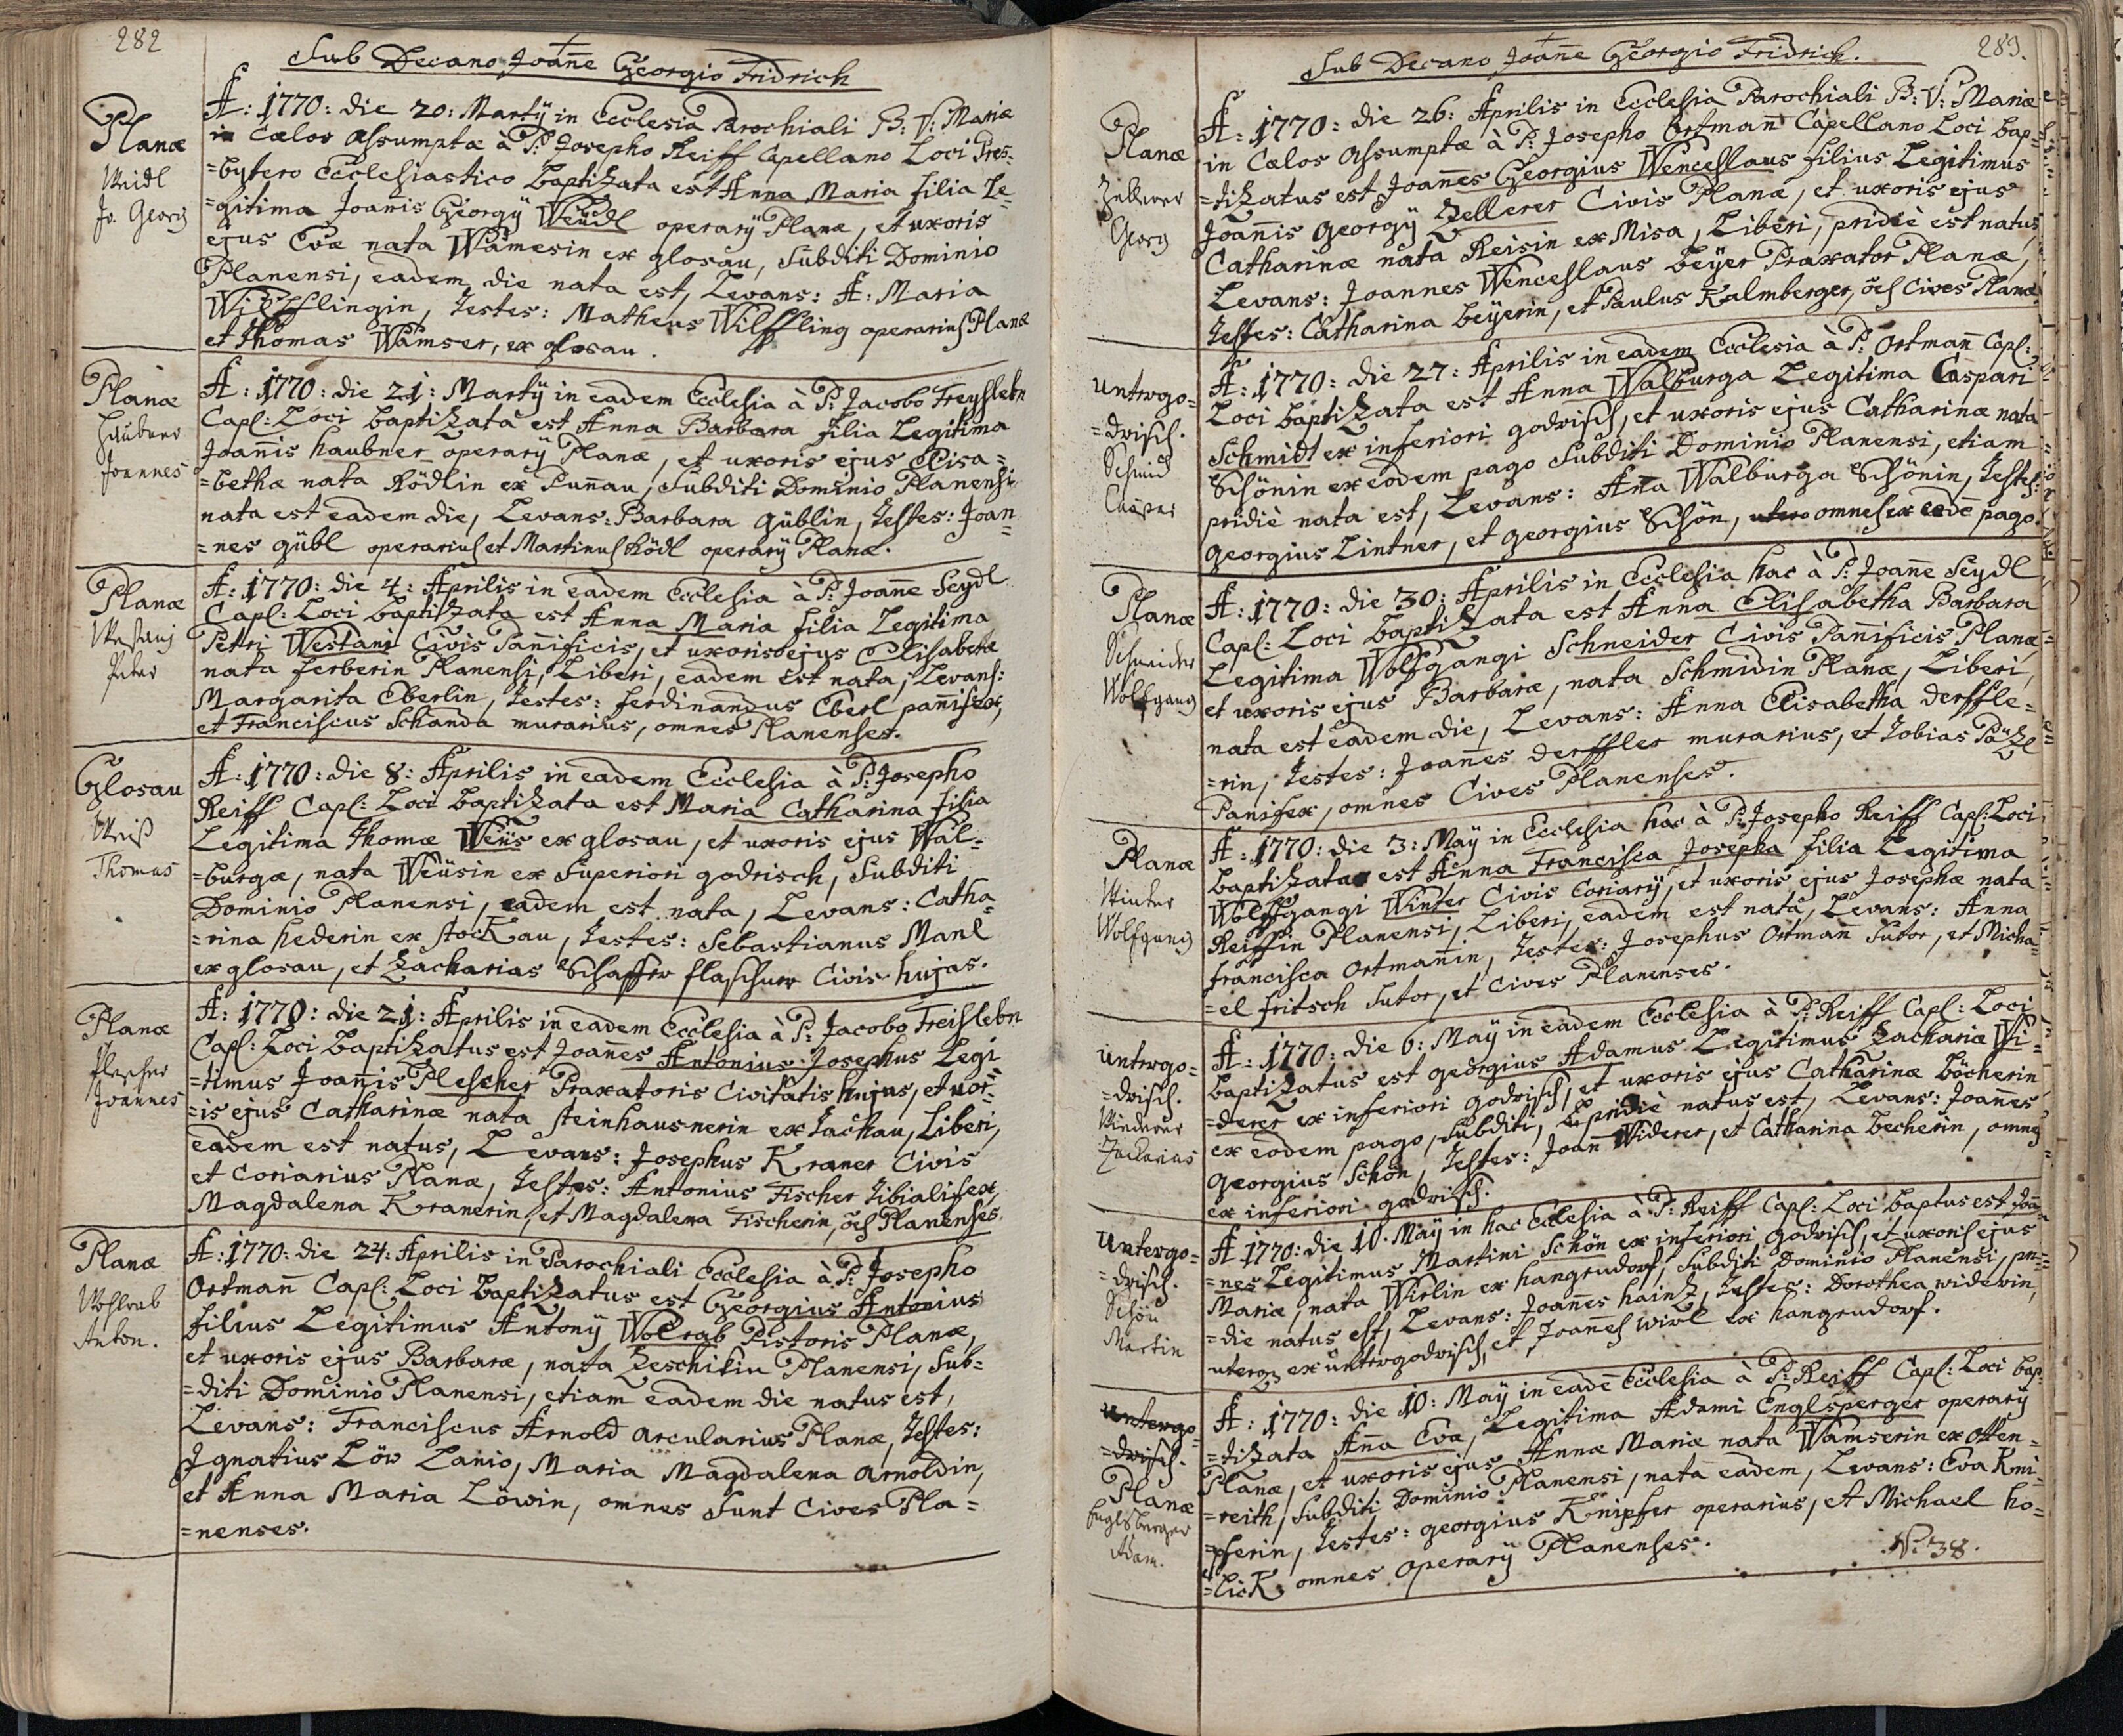 282
Sub Decano Joañe Georgio Fridrich
Planæ
Weidl
Jo. Georg
A: 1770: die 20: Martÿ in Ecclesia Parochiali B: V: Mariæ
in Cælos Assumptæ à P: Josepho Reiff Capellano Loci Pres=
=bytero Ecclesiastico baptizata est Anna Maria filia Le=
=gitima Joañis Georgÿ Weüdl operarÿ Planæ, et uxoris
ejus Evæ nata Wamesin ex glosau, Subditi Dominio
Planensi, eadem die nata est, Levans: A: Maria
Wilfflingin, Testes: Matheus Wilffling operarius Planæ
et Thomas Wamser, ex glosau.
Planæ
Haubner
Joannes
A: 1770: die 21: Martÿ in eadem Ecclesia à P: Jacobo Freyslebn
Capl: Loci baptizata est Anna Barbara filia Legitima
Joañis haubner operarÿ Planæ, et uxoris ejus Elisa=
=bethæ nata Rödlin ex Puñau, Subditi Dominio Planensi
nata est eadem die, Levans: Barbara Güblin, Testes: Joan=
=nes gübl operarius et Martinus Rödl operarÿ Planæ.
Planæ
Westani
Peter
A: 1770: die 4: Aprilis in eadem Ecclesia à P: Joañe Seydl
Capl: Loci baptizata est Anna Maria filia Legitima
Petri Westani Civis Pañificis, et uxoris ejus Elisabethæ
nata ferberin Planensi, Liberi, eadem est nata, Levans:
Margarita Eberlin, Testes: ferdinandus Eberl pañifex,
et Franciscus Schanda murarius, omnes Planenses.
Glosau
Weiß
Thomas
A: 1770: die 8: Aprilis in eadem Ecclesia à P: Josepho
Reiff Capl: Loci baptizata est Maria Catharina filia
Legitima Thomæ Weüs ex glosau, et uxoris ejus Wal=
=burgæ, nata Weüsin ex Superiori godrisch, Subditi
Dominio Planensi, eadem est nata, Levans: Catha=
=rina hederin ex stockau, Testes: Sebastianus Manl
ex glosau, et Zacharias Schaffer flaschner Civis hujas.
Planæ
Plescher
Joannes
A: 1770: die 21: Aprilis in eadem Ecclesia à P: Jacobo Freislebn
Capl: Loci baptizatus est Joañes Antonius Josephus Legi
=timus Joañis Plescher Praxatoris Civitatis hujus, et uxor=
=is ejus Catharinæ nata steinhausnerin ex Tachau, Liberi,
eadem est natus, Levans: Josephus Kraner Civis
et Coriarius Planæ, Testes: Antonius Fischer Tibialifex,
Magdalena Kranerin, et Magdalena Fischerin, oẽs Planenses.
Planæ
Wohlrab
Anton.
A: 1770: die 24: Aprilis in Parochiali Ecclesia à P: Josepho
Ortmañ Capl: Loci baptizatus est Georgius Antonius
filius Legitimus Antonÿ Wolrab Pistoris Planæ,
et uxoris ejus Barbaræ, nata Zeschikin Planensi, Sub=
=diti Dominio Planensi, etiam eadem die natus est,
Levans: Franciscus Arnold arcularius Planæ, Testes:
Ignatius Löw Lanio, Maria Magdalena Arnoldin,
et Anna Maria Löwin, omnes sunt Cives Pla=
=nenses.
283.
Sub Decano Joañe Georgio Fridrich.
Planæ
Zellerer
Georg
A: 1770: die 26: Aprilis in Ecclesia Parochiali B: V: Mariæ
in Cælos Assumptæ à P: Josepho Ortmañ Capellano Loci bap=
=tizatus est Joañes Georgius Wenceslaus filius Legitimus
Joañis georgÿ Zellerer Civis Planæ, et uxoris ejus
Catharinæ nata Reisin ex Misa, Liberi, pridiè est natus,
Levans: Joannes Wenceslaus beÿer Praxator Planæ,
Testes: Catharina beÿerin, et Paulus Kalmberger, oẽs Cives Planæ.
Untergo=
=drisch.
Schmid
Casper
A: 1770: die 27: Aprilis in eadem Ecclesia à P: Ortmañ Capl:
Loci baptizata est Anna Walburga Legitima Caspari
Schmidt ex inferiori godrisch, et uxoris ejus Catharinæ nata
Schönin ex eodem pago Subditi Dominio Planensi, etiam
pridiè nata est, Levans: Aña Walburga Schönin, Testes:
georgius Lintner, et georgius Schön, omnes ex eodẽ pago.
Planæ
Schneider
Wolfgang
A: 1770: die 30: Aprilis in Ecclesia hac à P: Joañe Seydl
Capl: Loci baptizata est Anna Elisabetha Barbara
Legitima Wolfgangi Schneider Civis Pañificis Planæ,
et uxoris ejus Barbaræ, nata Schmidin Planæ, Liberi,
nata est eadem die, Levans: Anna Elisabetha derffle=
=rin, Testes: Joañes derffler murarius, et Tobias Päzl
Panifex, omnes Cives Planenses.
Planæ
Winter
Wolfgang
A: 1770: die 3: Maÿ in Ecclesia hac à P: Josepho Reiff Capl: Loci
baptizata est Anna Francisca Josepha filia Legitima
Wolffgangi Winter Civis Coriarÿ, et uxoris ejus Josephæ nata
Reiffin Planensi, Liberi, eadem est nata, Levans: Anna
francisca Ortmañin, Testes: Josephus Ortmañ Sutor, et Micha=
=el fritsch Sutor, et Cives Planenses.
Untergo=
=drisch.
Wiederer
Zacharias
A: 1770: die 6: Maÿ in eadem Ecclesia à P: Reiff Capl: Loci
baptizatus est georgius Adamus Legitimus Zachariæ Wi=
=derer ex inferiori godrisch, et uxoris ejus Catharinæ böcherin
ex eodem pago, Subditi, pridiè natus est, Levans: Joañes
georgius Schön, Testes: Joañ Widerer, et Catharina becherin, omnes
ex inferiori godrisch.
Untergo=
=drisch.
Schön
Martin
A 1770: die 10. Maÿ in hac Ecclesia à P: Reiff Capl: Loci baptus est Joañ
=nes Legitimus Martini Schön ex inferiori godrisch, et uxoris ejus
Mariæ, nata Wirlin ex hangendorf, Subditi Dominio Planensi, pri=
=die natus est, Levans: Joañes hainz, Testes: Dorothea widerin,
uterq ex untergodrisch, et Joañes wirl ex hangendorf.
Untergo=
=drisch.
Planæ
Englsberger
Adam.
A: 1770: die 10: Maÿ in eadẽ Ecclesia à P: Reiff Capl: Loci bap=
=tizata Aña Eva, Legitima Adami Englsperger operarÿ
Planæ, et uxoris ejus Annæ Mariæ nata Wamserin ex Otten=
=reith, Subditi Dominio Planensi, nata eadem, Levans: Eva Kni=
=pferin, Testes: georgius Knipfer operarius, et Michael ho=
=lick omnes operarÿ Planenses.
N: 38.